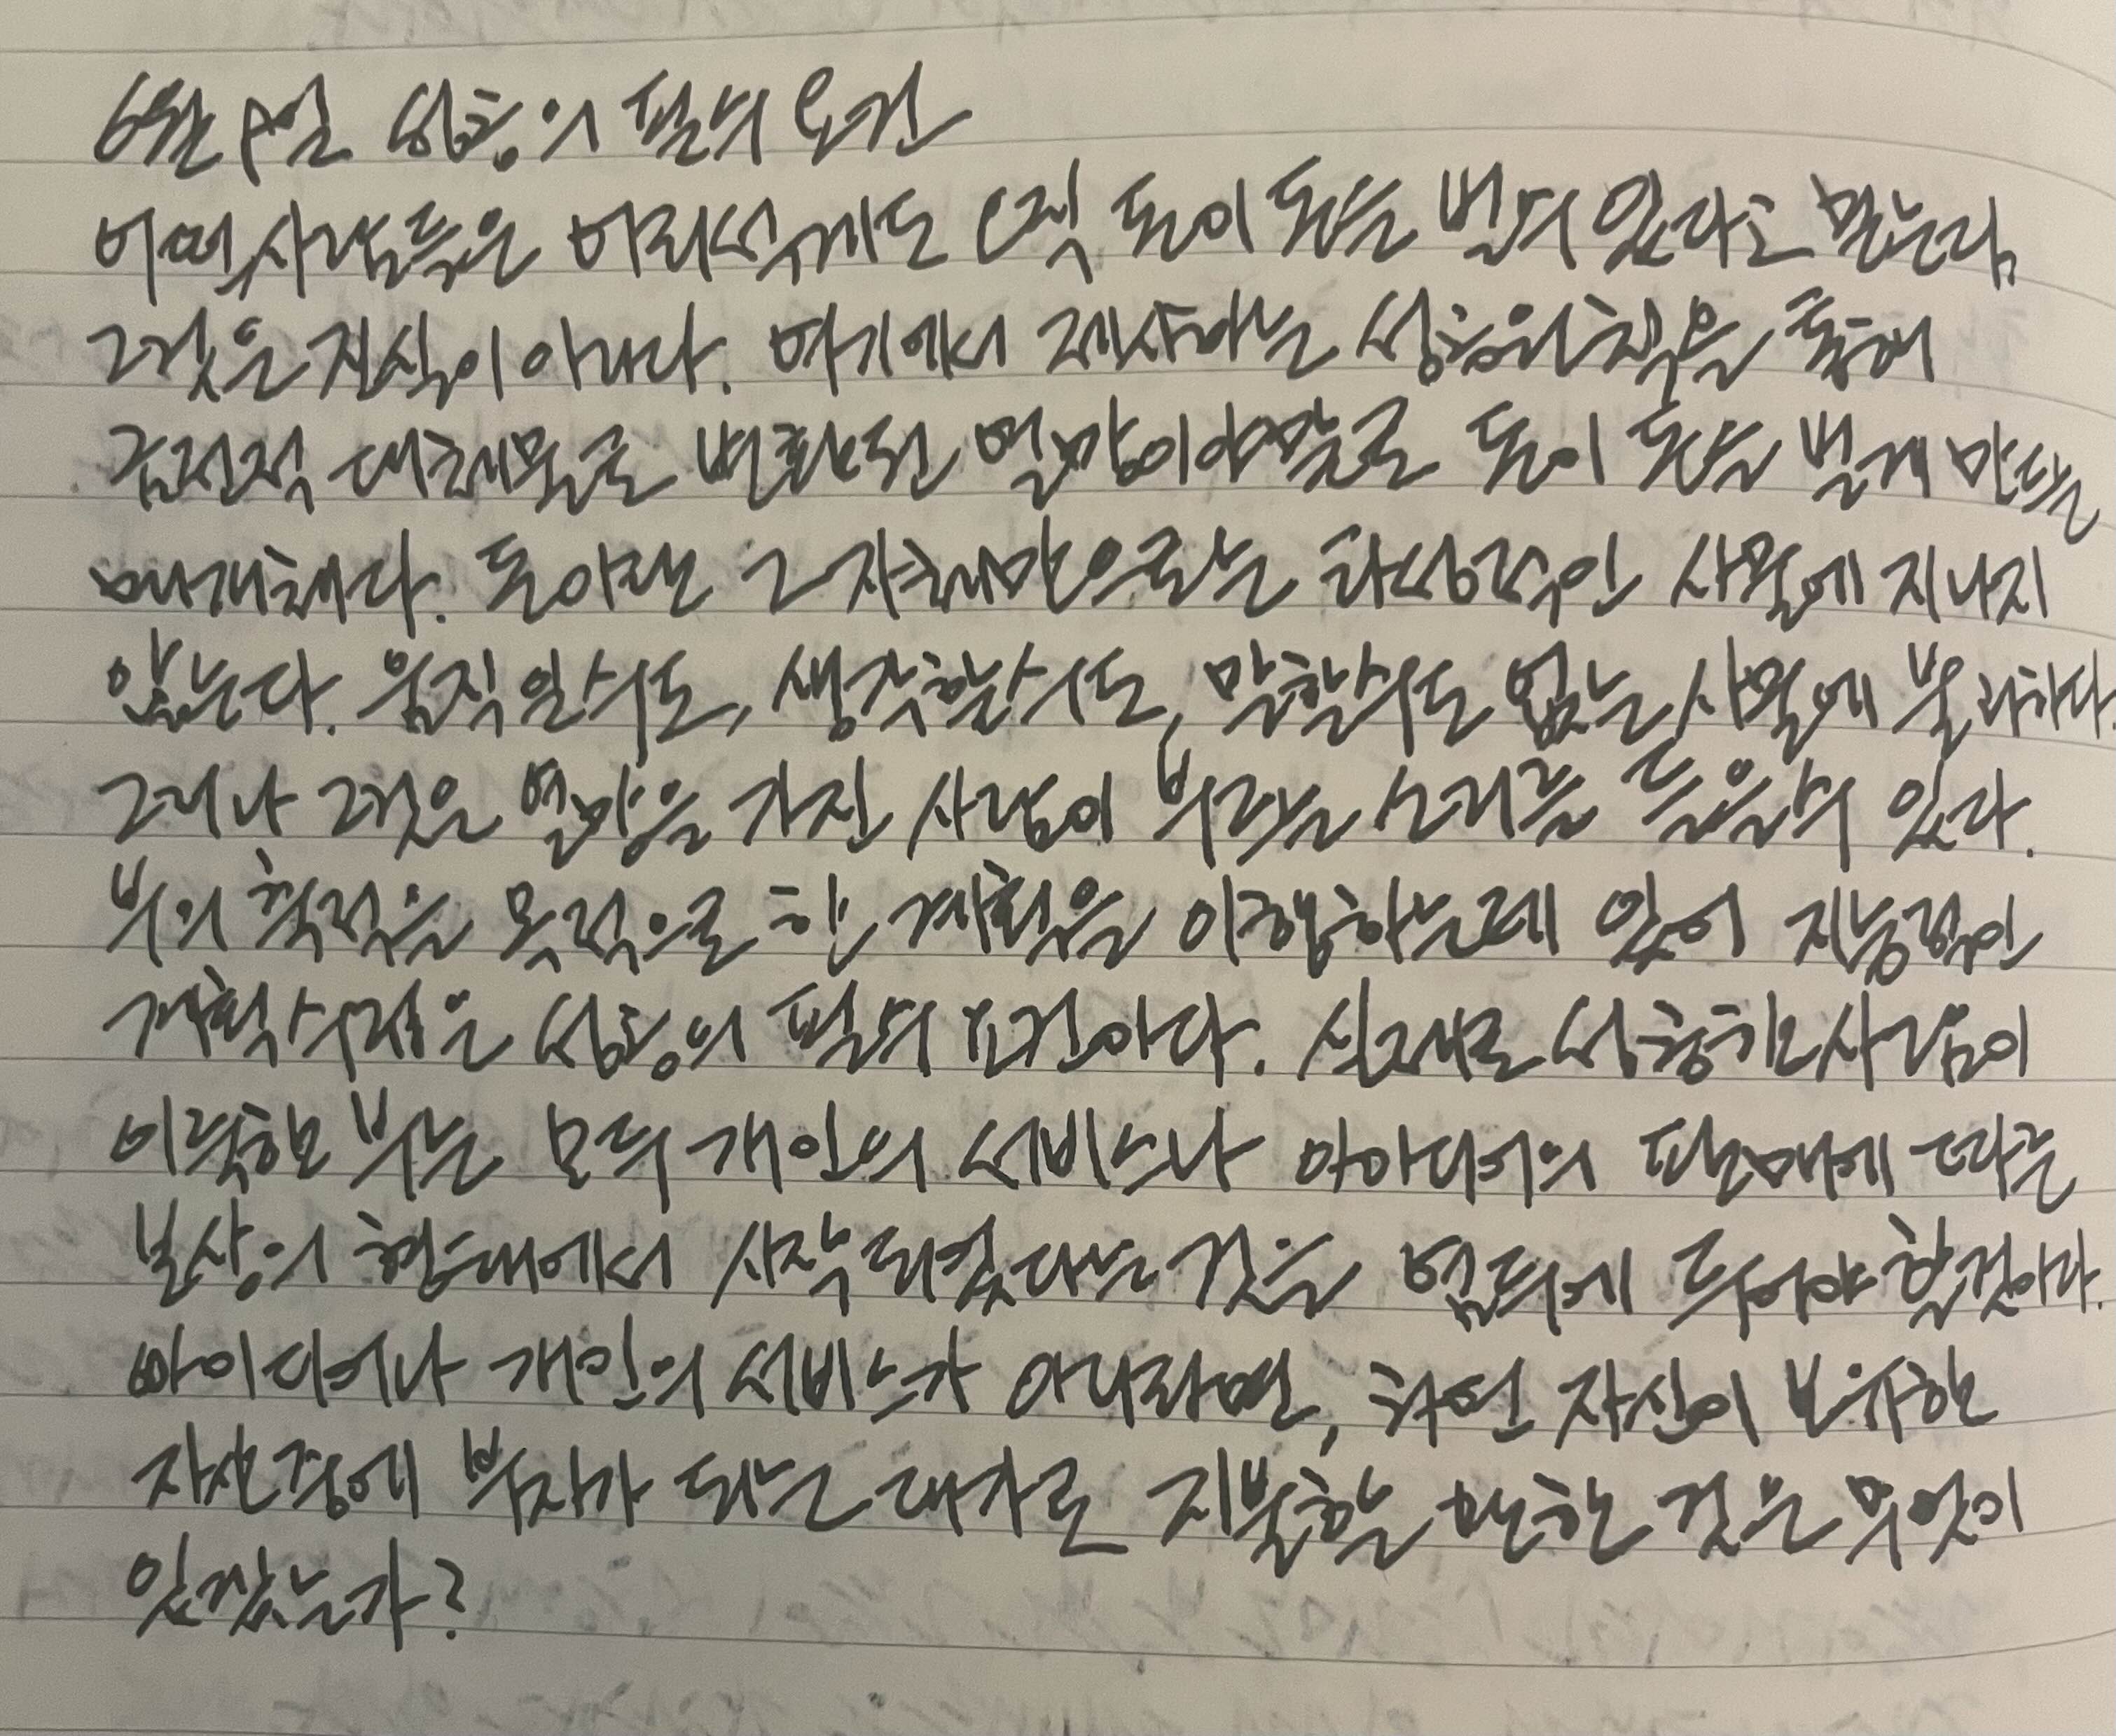 6월 8일 성공의 필수 요건
어떤 사람들은 어리석게도 오직 돈이 돈을 벌 수 있다고 믿는다.
그것은 진실이 아니다. 여기에서 제시하는 성공원칙을 통해
금전적 대체물로 변환된 열망이야말로 돈이 돈을 벌게 만드는
매개체다. 돈이란 그 자체만으로는 타성적인 사물에 지나지
않는다. 움직일 수도, 생각할 수도, 말할 수도 없는 사물에 불과하다.
그러나 그것은 열망을 가진 사람이 부르는 소리를 들을 수 있다.
부의 축적을 목적으로 한 계획을 이행하는데 있어 지능적인
계획수립은 성공의 필수 요건이다. 실제로 성공한 사람이
이룩한 부는 모두 개인의 서비스나 아이디어의 판매에 따른
보상의 형태에서 시작되었다는 것을 염두에 두어야 할것이다.
아이디어나 개인의 서비스가 아니라면, 과연 자신이 보유한
자산중에 부자가 되는 대가로 지불할 만한 것은 무엇이
있겠는가?